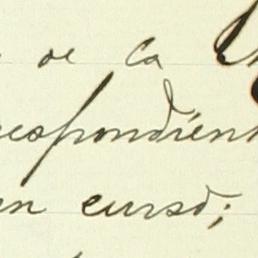 de la
respondient
en curso;